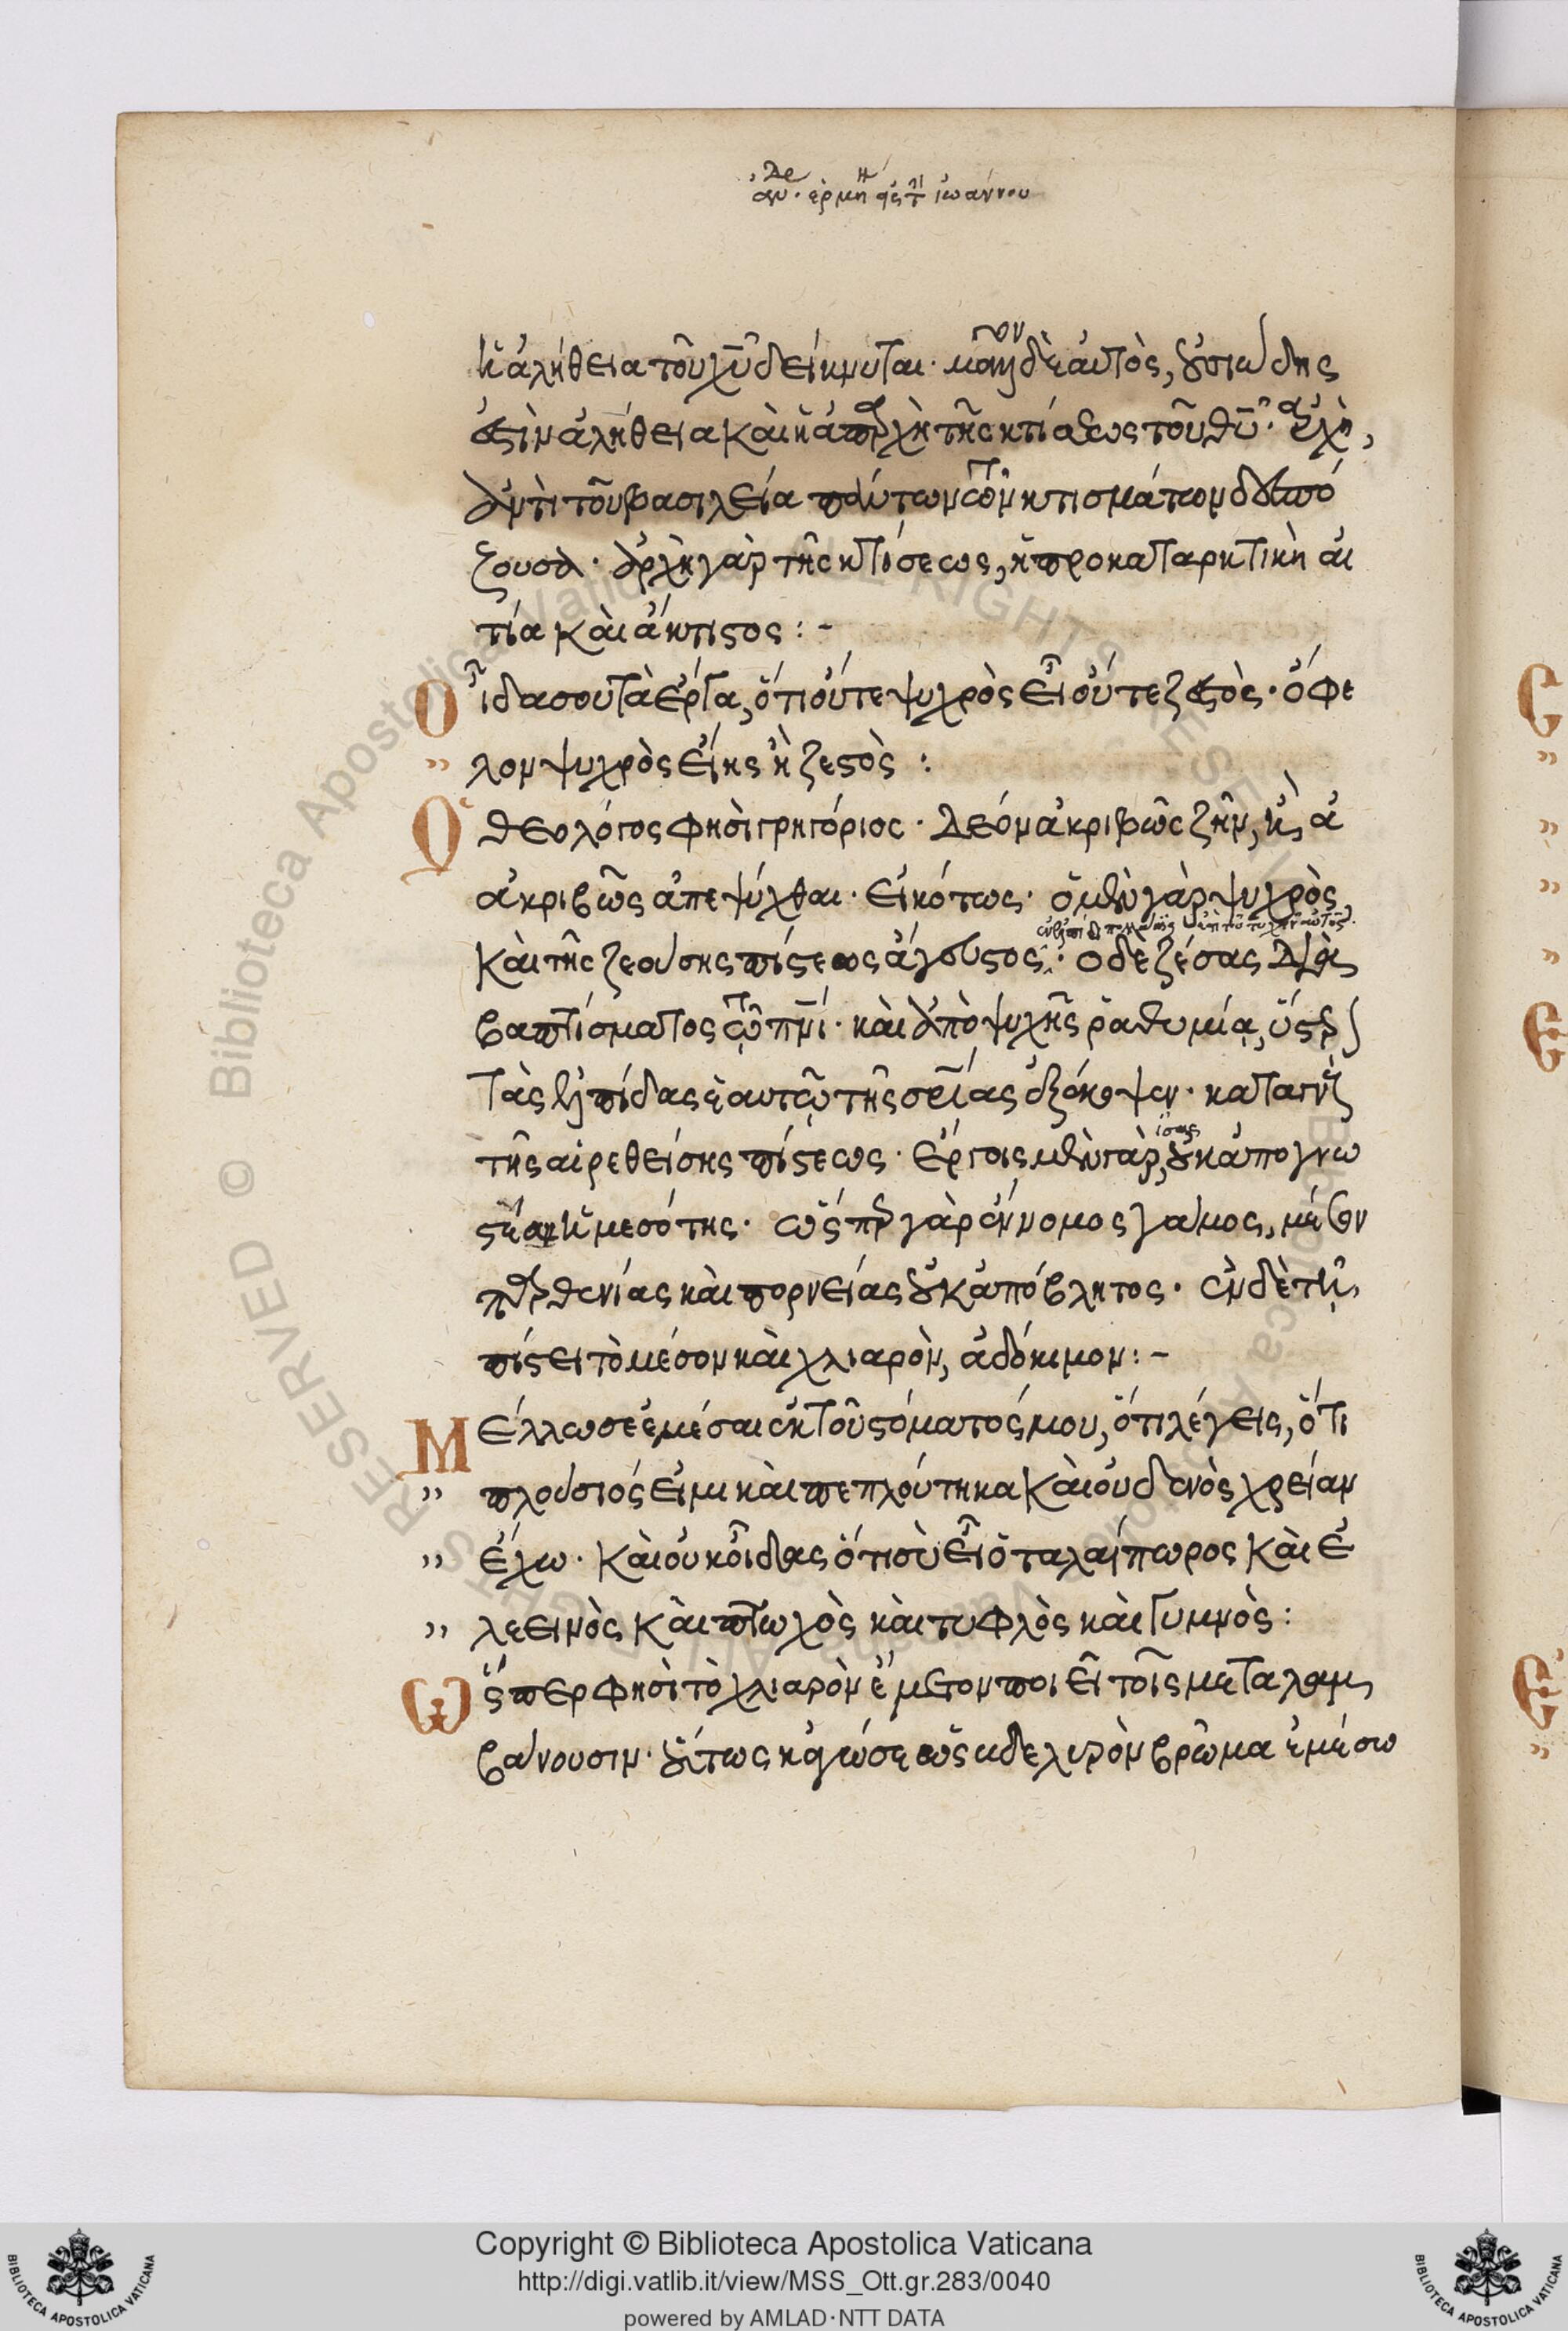 ἡ ἀλήθεια τοῦ χυ δείκνυται· μᾶλλον δὲ αὐτὸς, οὐσιώδης
ἐστὶν ἀλήθεια καὶ ἡ ἀπαρχὴ τῆς κτίσεως τοῦ θυ· ἀρχὴ,
ἀντὶ τοῦ βασιλεία πάντων τῶν κτισμάτων δεσπό
ζουσα· ἀρχὴ γὰρ τῆς κτίσεως, ἡ προκαταρκτικὴ αἰ
τία καὶ ἄκτιστος :-
Οἶδα σου τὰ ἔργα, ὅτι οὔτε ψυχρὸς εἶ οὔτε ζεστὸς· ὄφε
λον ψυχρὸς εἴης ἢ ζεστὸς :
Ὁ θεολόγος φησὶ γρηγόριος· δέον ἀκριβῶς ζῆν, ἢ ἀ
ἀκριβῶς ἀπεψύχθαι· εἰκότως· ὁ μὲν γὰρ ψυχρὸς,
καὶ τῆς ζεούσης πίστεως ἄγευστος· ὁ δὲ ζέσας διὰ
βαπτίσματος τῷ πνι· καὶ ἀπὸ ψυχῆς ῥαθυμίᾳ, ὕστερ
τὰς ἐλπίδας ἑαυτῷ τῆς σρίας ἐξέκοψεν· καταγνοὺς
τῆς αἱρεθείσης πίστεως· ἔργοις μὲν γὰρ, ἴσως οὐκ ἀπογνω
στέα ἡ μεσότης· ὥσπερ γὰρ ἔννομος γάμος, μέσον
παρθενίας καὶ πορνείας οὐκ ἀπόβλητος· ἐν δὲ τῇ
πίστει τὸ μέσον καὶ χλιαρὸν, ἀδόκιμον :-
Μέλλω σε ἐμέσαι ἐκ τοῦ στόματός μου, ὅτι λέγεις, ὅτι
πλούσιός εἰμι καὶ πεπλούτηκα καὶ οὐδενὸς χρείαν
ἔχω· καὶ οὐκ οἶδας ὅτι σὺ εἶ ὁ ταλαίπωρος καὶ ἐ
λεεινὸς καὶ πτωχὸς καὶ τυφλὸς καὶ γυμνὸς :
Ὥσπερ φησὶ τὸ χλιαρὸν ἔμετον ποιεῖ τοῖς μεταλαμ
βάνουσιν· οὕτως κἀγώ σε ὡς βδελυρὸν βρῶμα ἐμέσω
Copyright © Biblioteca Apostolica Vaticana
http://digi.vatlib.it/view/MSS_Ott.gr.283/0040
powered by AMLAD·NTT DATA
BIBLIOTECA APOSTOLICA VATICANA
BIBLIOTECA APOSTOLICA VATICANA